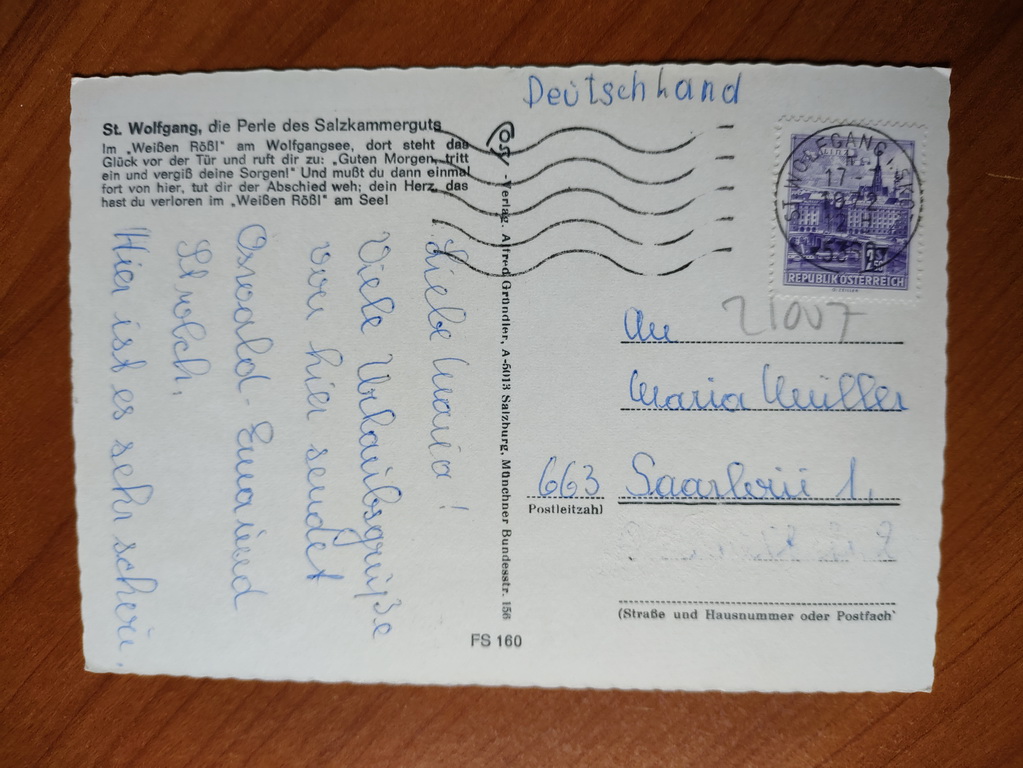 Deutschland
St. Wolfgang, die Perle des Salzkammerguts
Im „Weißen Rößl" am Wolfgangsee, dort steht das
Glück vor der Tür und ruft dir zu: „Guten Morgen, tritt
ein und vergiß deine Sorgen!" Und mußt du dann einmal
fort von hier, tut dir der Abschied weh; dein Herz, das
hast du verloren im „Weißen Rößl" am See!
Liebe Maria!
Viele Urlaubsgrüße
von hier sendet
Oswald
Hier ist es sehr schön.
-Verlag, Alfred Gründler, A-5013 Salzburg, Münchner Bundesstr. 156
FS 160
ST. WOLFGANG
17.
5360
REPUBLIK ÖSTERREICH
21007
An
Maria Müller
663 Saarlouis 1.
Postleitzahl
(Straße und Hausnummer oder Postfach)